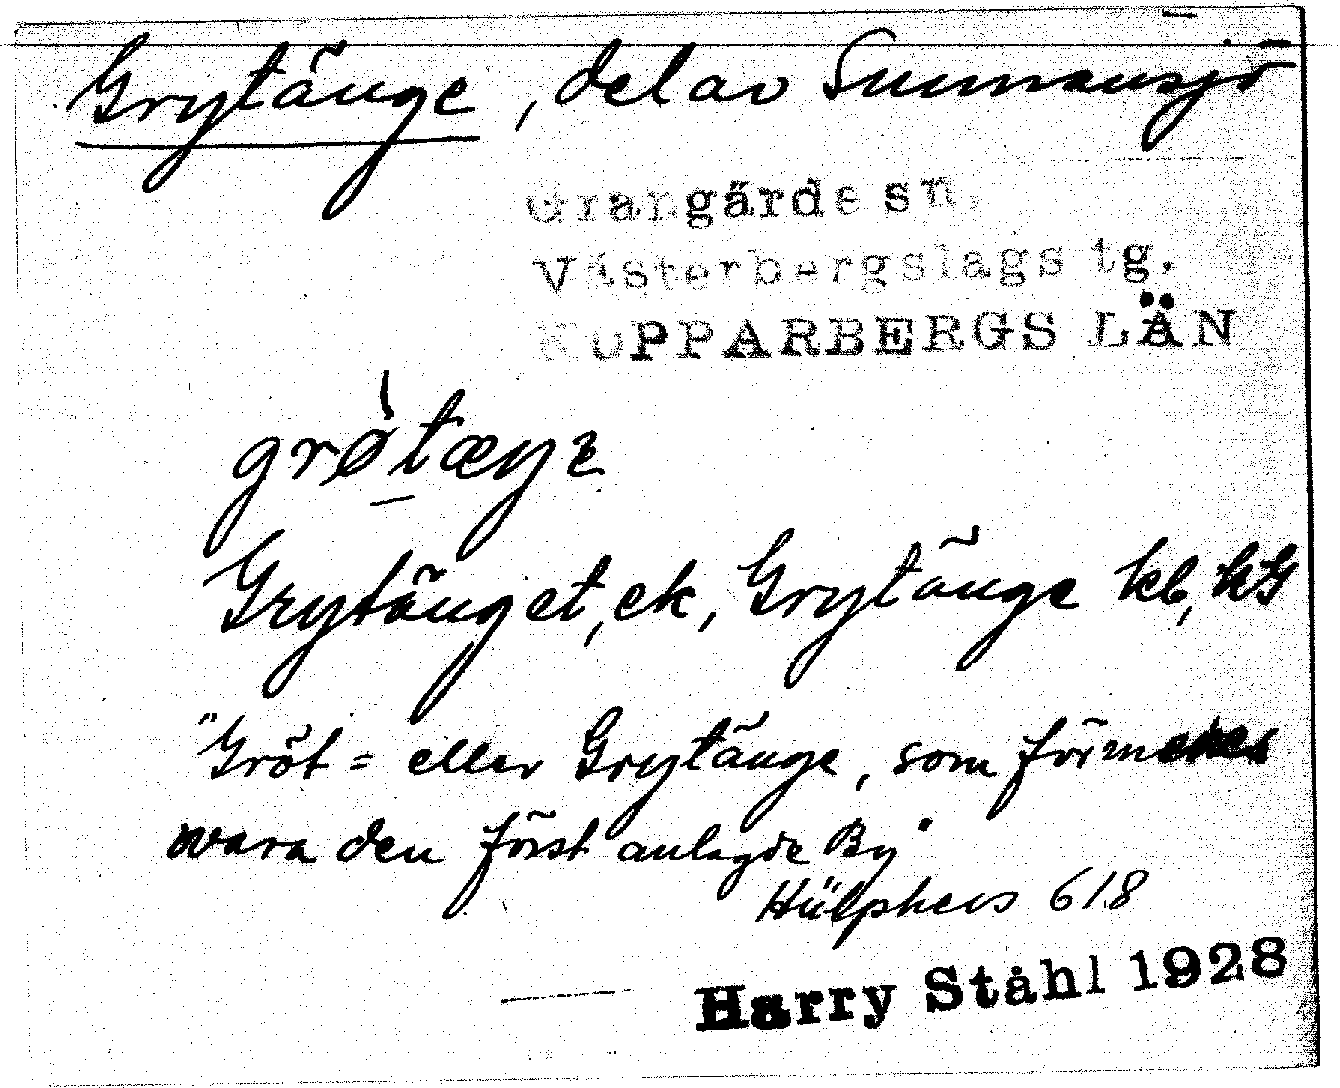 Grytänge, del av Sunnansjö
Grangärde sn.
Västerbergslags tg.
KOPPARBERGS LÄN
grø̀tæŋɛ
Grytänget, ek, Grytänge kb, kG
"Gröt= eller Grytänge, som förmenes
wara den först anlagde By"
Hülphers 618
Harry Ståhl 1928